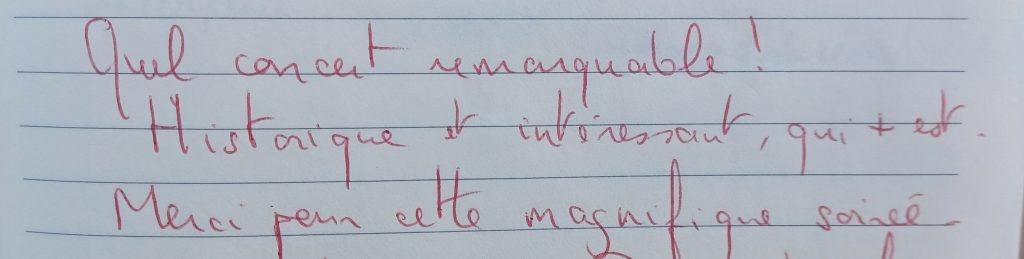 Quel concert remarquable !
Historique et intéressant, qui + est.
Merci pour cette magnifique soirée